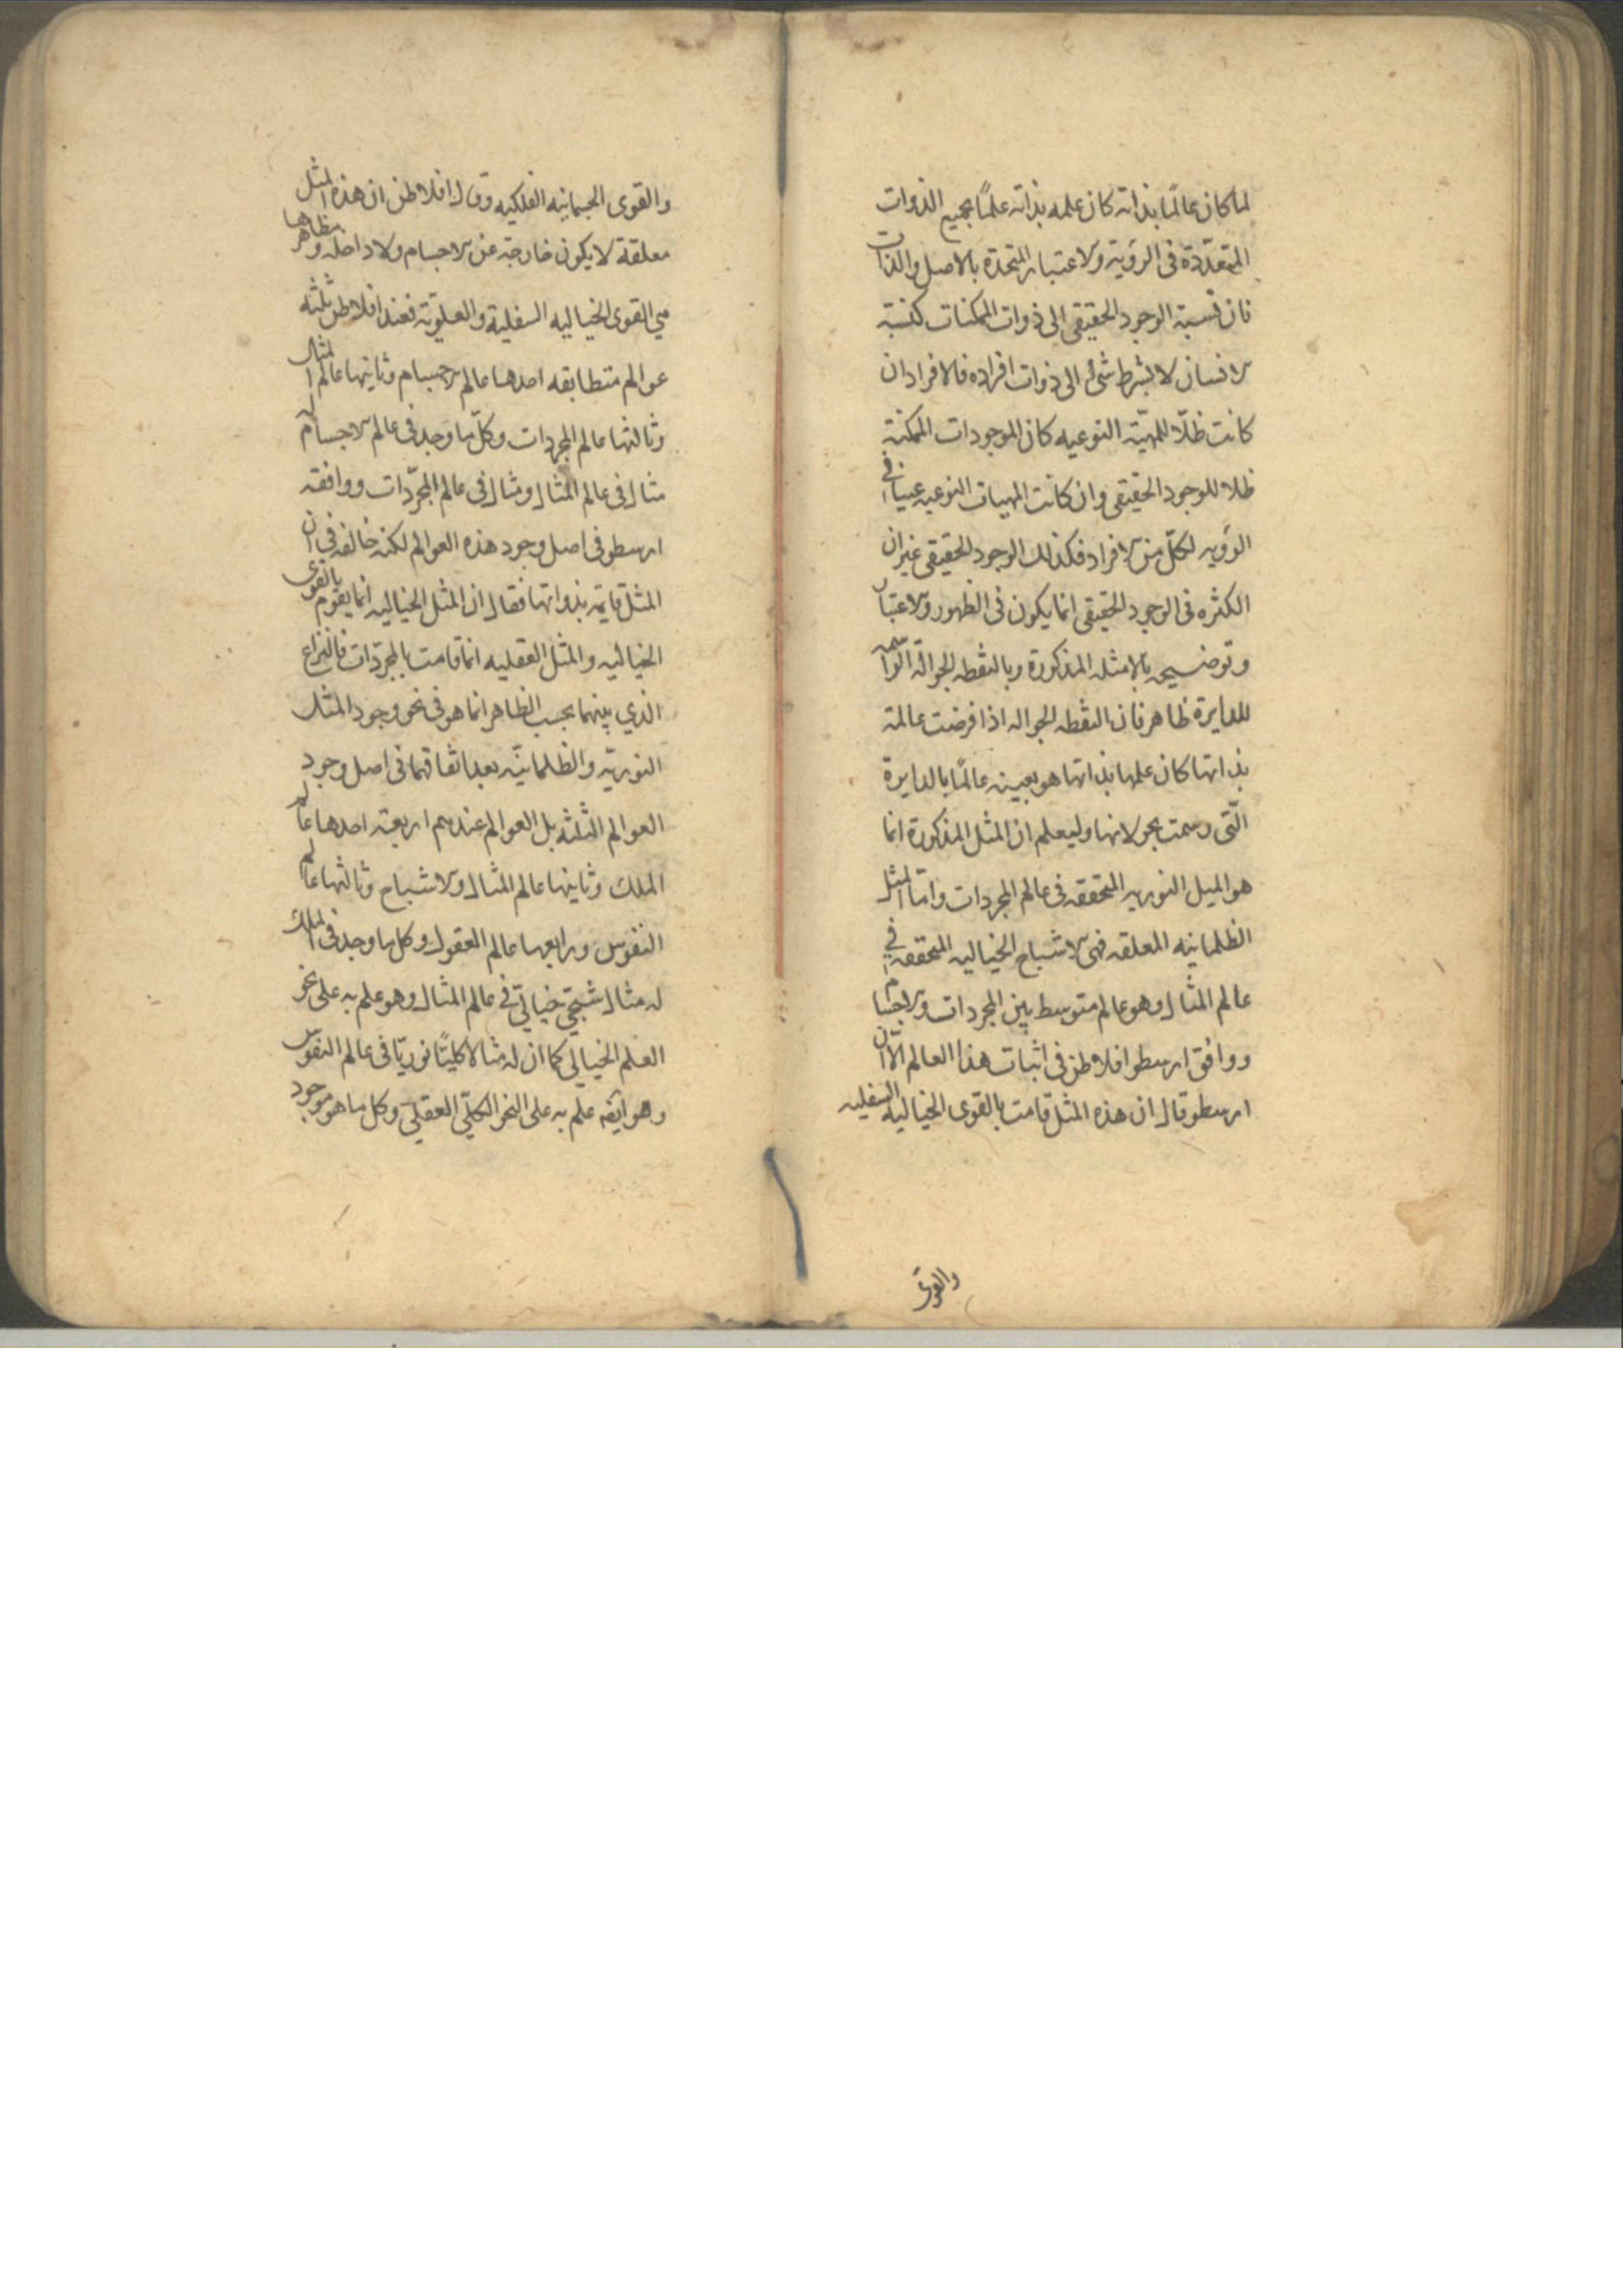 لما كان عالمًا بذاته كان علمه بذاته علمًا بجميع الذوات
المتعدّدة فى الرؤية والاعتبار المتحدة بالاصل والذات
فان نسبة الوجود الحقيقى الى ذوات الممكنات كنسبة
الانسان لا بشرط شئ الى ذوات افراده فالافراد ان
كانت ظلّا للمهيّة النوعيه كان الموجودات الممكنة
ظلا للوجود الحقيقى وان كانت المهيات النوعيه عينا فى
الرؤيه لكلّ من الافراد فكذلك الوجود الحقيقى غير ان
الكثره فى الوجود الحقيقى انما يكون فى الظهور والاعتبار
وتوضيحه بالامثله المذكورة وبالنقطه الجوالة الراسمه
للدايرة ظاهر فان النقطه الجواله اذا فرضت عالمة
بذاتها كان علمها بذاتها هو بعينه عالمًا بالدايرة
الّتى رسمت بجولانها وليعلم ان المثل المذكورة انما
هو الميل النوريه المتحققه فى عالم المجردات وامّا المثل
الظلمانيه المعلقه فهى الاشباح الخياليه المتحققه فى
عالم المثال وهو عالم متوسط بين المجردات والاجسام
ووافق ارسطو افلاطن فى اثبات هذا العالم الّا ان
ارسطو قال ان هذه المثل قامت بالقوى الخياليه السفليه
والقوى
والقوى الجسمانيه الفلكيه وقال افلاطن ان هذه المثل
معلقة لا يكون خارجة عن الاجسام ولا داخله ومظاهرها
هى القوى الخياليه السفلية والعلويّة فعند افلاطن ثلثه
عوالم متطابقه احدها عالم الاجسام وثانيها عالم المثال
وثالثها عالم المجردات وكلّ ما وجد فى عالم الاجسام له
مثال فى عالم المثال ومثال فى عالم المجرّدات ووافقه
ارسطو فى اصل وجود هذه العوالم لكنه خالفه فى ان
المثل قايمة بذواتها فقال ان المثل الخياليه انما يقوم بالقوى
الخياليه والمثل العقليه انما قامت بالمجرّدات فالنزاع
الذي بينهما بحسب الظاهر انما هو فى نحو وجود المثل
النوريّه والظلمانيّه بعد اتّفاقهما فى اصل وجود
العوالم الثلثه بل العوالم عندهم اربعة احدها عالم
الملك وثانيها عالم المثال والاشباح وثالثها عالم
النفوس ورابعها عالم العقول وكل ما وجد فى الملك
له مثال شبحيّ خياليّ فى عالم المثال وهو علم به على نحو
العلم الخيالي كما ان له مثالا كليًّا نوريّا فى عالم النفوس
وهو ايضه علم به على النحو الكلّي العقليّ وكل ما هو موجود